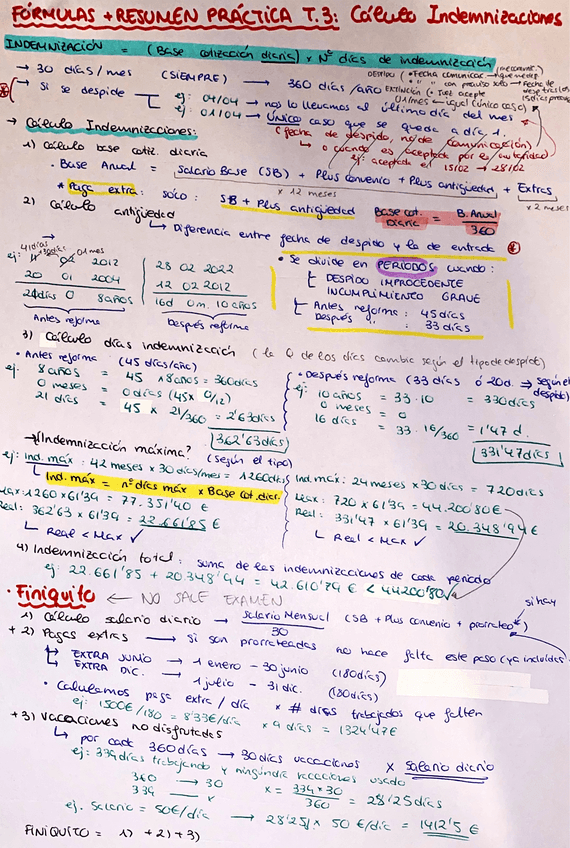 FÓRMULAS + RESUMEN PRÁCTICA T.3: Cálculo Indemnizaciones
INDEMNIZACIÓN = (Base cotización diaria) x Nº días de indemnización
→ 30 días/mes (SIEMPRE) → 360 días/año
→ Si se despide
ej: 04/04 → no lo llevamos al último día del mes
ej: 01/04 → ÚNICO caso que se queda a día 1.
(fecha de despido, no de comunicación)
ej: aceptada el 15/02 → 28/02
→ Cálculo Indemnizaciones:
1) Cálculo base cotiz. diaria
· Base Anual = Salario Base (SB) + Plus convenio + Plus antigüedad + Extras
x 12 meses
x 2 meses
* Paga extra: sólo: SB + Plus antigüedad
Base cot. Diaria = B. Anual / 360
2) Cálculo antigüedad
↳ Diferencia entre fecha de despido y la de entrada
ej:
41días
01 mes
02 2012
20 01 2004
21días 0 8años
Antes reforma
28 02 2022
12 02 2012
16d 0m. 10años
Después reforma
• Se divide en PERIODOS cuando:
DESPIDO IMPROCEDENTE
INCUMPLIMIENTO GRAVE
Antes reforma: 45 días
Después ": 33 días
3) Cálculo días indemnización (la Q de los días cambia según el tipo de despido)
• Antes reforma (45 días/año)
ej: 8 años = 45 x 8 años = 360 días
0 meses = 0 días (45 x 0/12)
21 días = 45 x 21/360 = 2'63 días
362'63 días
• Después reforma (33 días ó 20d. → según el despido)
ej: 10 años = 33·10 = 330 días
0 meses = 0
16 días = 33·16/360 = 1'47 d.
331'47 días
→ ¿Indemnización máxima? (según el tipo)
ej: Ind. máx: 42 meses x 30 días/mes = 1260 días
↳ Ind. máx = nº días máx x Base cot. diar.
Max: 1260 x 61'39 = 77.351'40 €
Real: 362'63 x 61'39 = 22.661'85 €
↳ Real < Max ✓
Ind. máx: 24 meses x 30 días = 720 días
Max: 720 x 61'39 = 44.200'80 €
Real: 331'47 x 61'39 = 20.348'94 €
↳ Real < Max ✓
4) Indemnización total: suma de las indemnizaciones de cada periodo
ej: 22.661'85 + 20.348'94 = 42.610'79 € < 44200'80 ✓
· Finiquito ← NO SALE EXAMEN
1) Cálculo salario diario → Salario Mensual / 30 (SB + Plus convenio + prorrateo*)
si hay
+ 2) Pagas extras → si son prorrateadas no hace falta este paso (ya incluidas)
EXTRA JUNIO → 1 enero - 30 junio (180días)
EXTRA DIC. → 1 julio - 31 dic. (180días)
• Calculamos paga extra / día x # días trabajados que falten
ej: 1500€/180 = 8'33€/día x 9 días = 1324'47€
+ 3) Vacaciones no disfrutadas
↳ por cada 360 días → 30 días vacaciones x salario diario
ej: 339 días trabajando y ningún día vacaciones usado
360 → 30
339 → x
x = 339 * 30 / 360 = 28'25 días
ej. Salario = 50€/día → 28'25 x 50 €/día = 1412'5 €
FINIQUITO = 1) + 2) + 3)